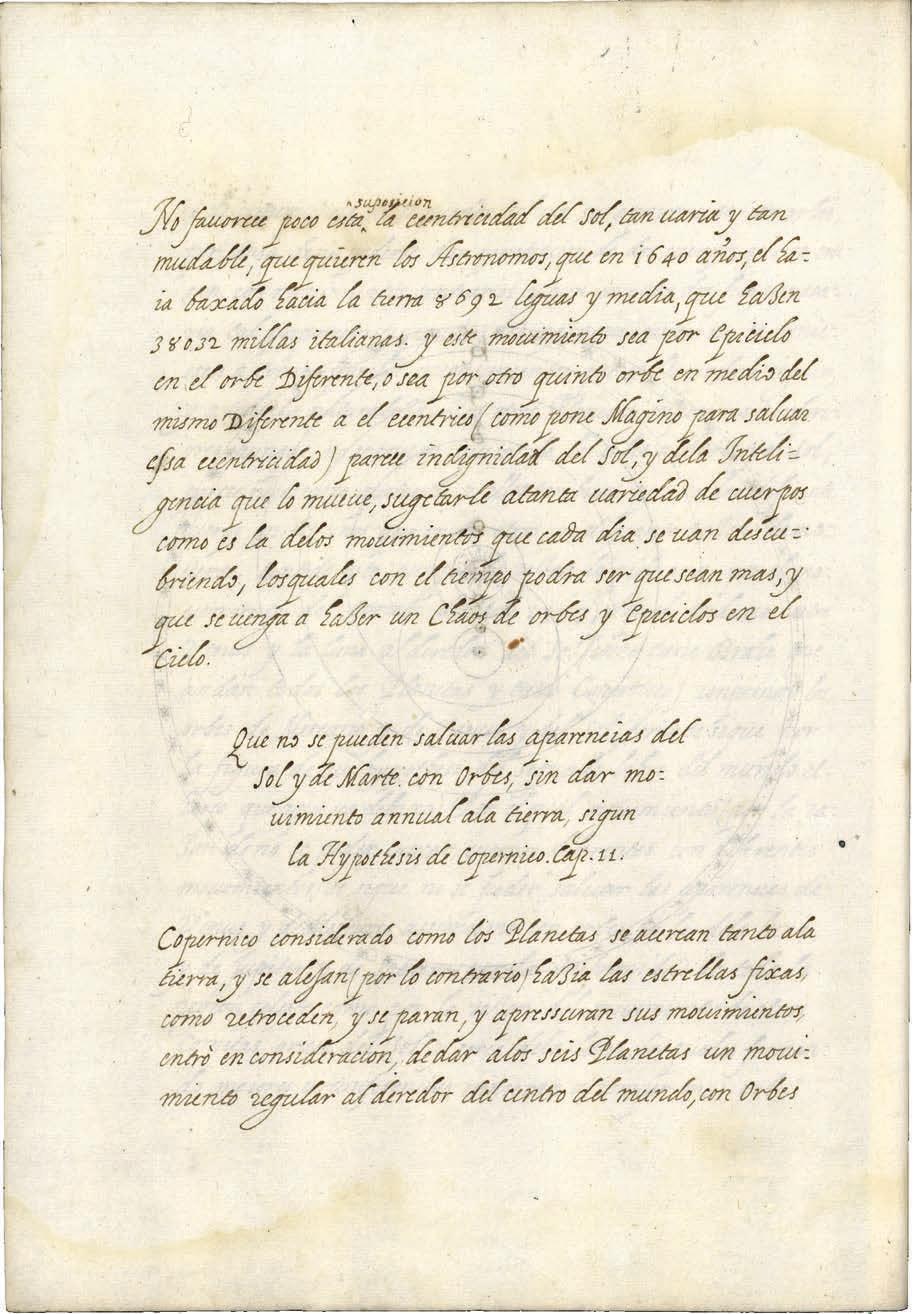 No favorece poco esta ^suposicion la ecentricidad del Sol, tan uaria y tan
mudable, que quieren los Astronomos, que en 1640 años, el ha-
ia baxado hacia la tierra 8692 leguas y media, que haßen
38032 millas italianas. y este mouimiento sea por Epiciclo
en el orbe Diferente, o sea por otro quinto orbe en medio del
mismo Diferente a el ecentrico (como pone Magino para saluar
essa ecentricidad) parece indignidad del Sol, y dela Inteli-
gencia que lo mueve, sugetarle atanta uariedad de cuerpos
como es la delos mouimientos que cada dia se uan descu-
briendo, losquales con el tiempo podra ser que sean mas, y
que se uenga a haßer un Chaos de orbes y Epiciclos en el
Cielo.
Que no se pueden saluar las apareneias del
Sol y de Marte con Orbes, sin dar mo-
uimiento annual ala tierra, sigun
la Hypothesis de Copernico. Cap. 11.
Copernico considerado como los Planetas se acercan tanto ala
tierra, y se alesan (por lo contrario) haßia las estrellas fixas,
como retroceden, y se paran, y apressuran sus mouimientos,
entrò en consideracion, dedar alos seis Planetas un moui-
miento regular al deredor del centro del mundo, con Orbes